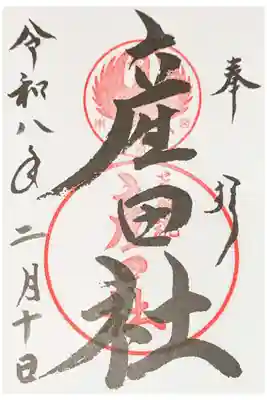 奉拝
産田社
令和八年二月十日